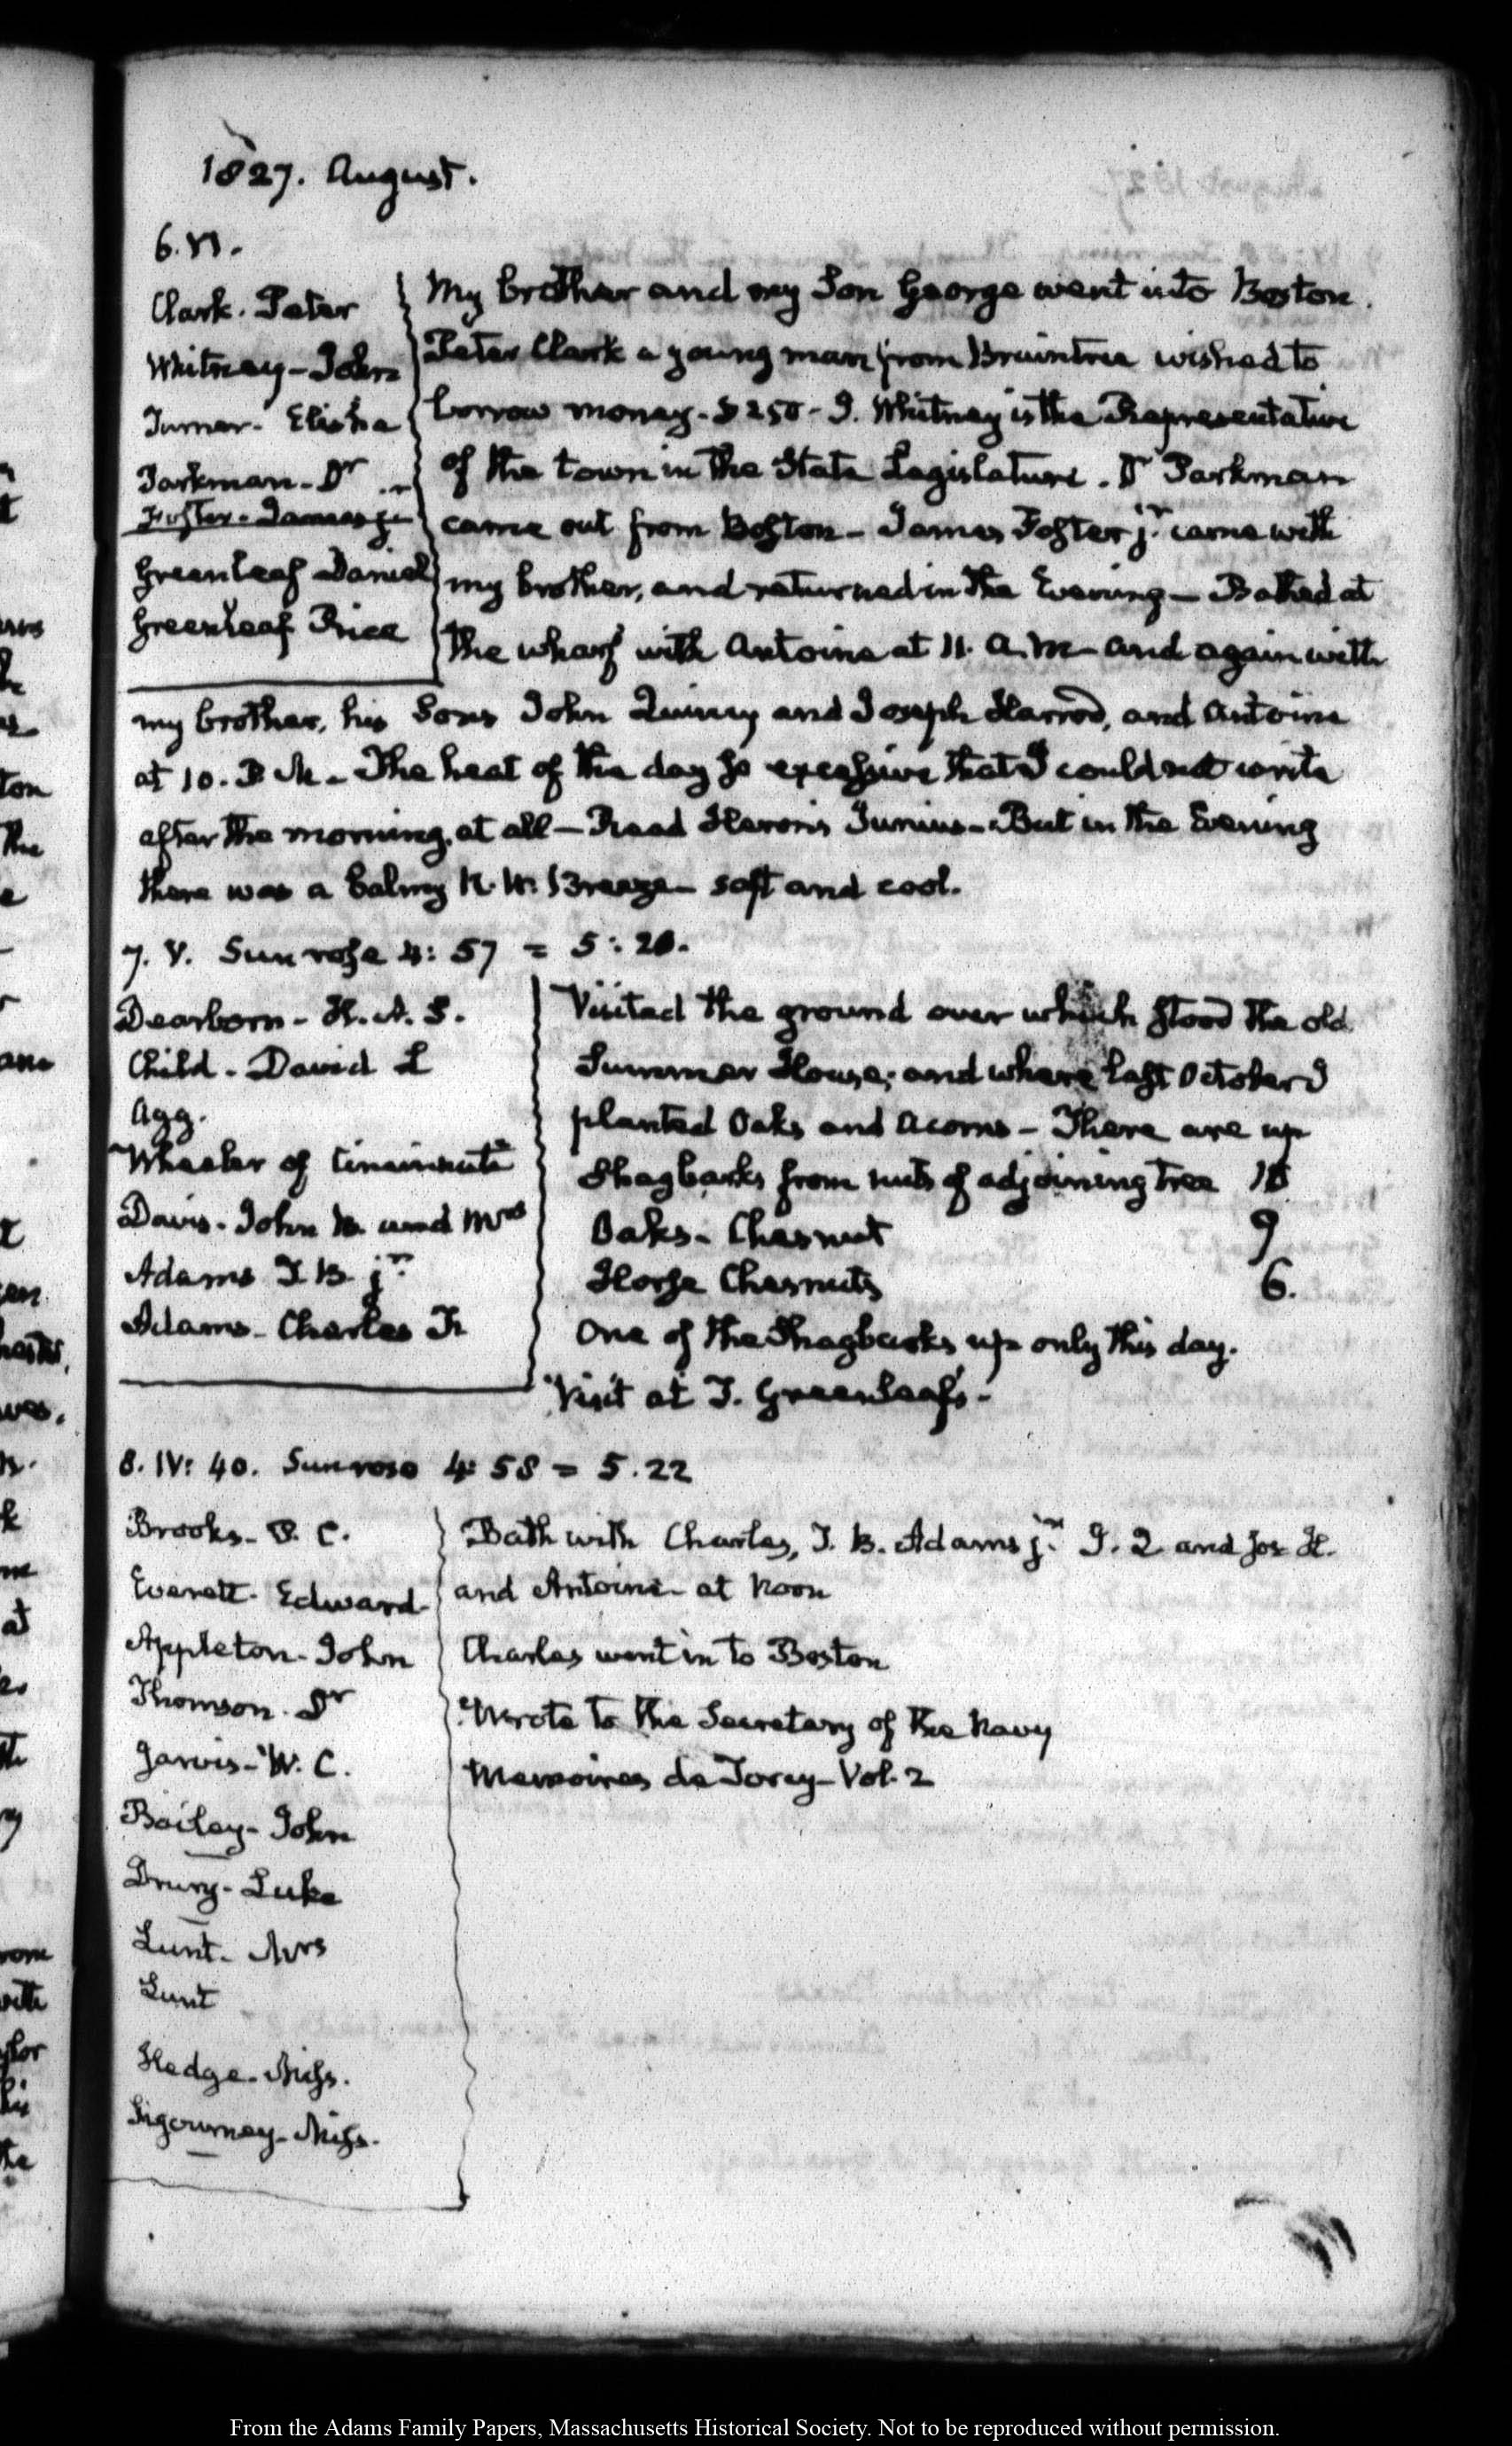 1827. August.
6. VI.
Clark. Peter
Whitney - John
Turner - Elisha
Parkman - Dr
Foster - James jr
Greenleaf Daniel
Greenleaf Price
My brother and my Son George went into Boston.
Peter Clark a young man from Braintree wished to
borrow money - $250 - J. Whitney is the Representative
of the town in the State Legislature. Dr Parkman
came out from Boston - James Foster jr. came with
my brother, and returned in the Evening - Bathed at
the wharf with Antoine at 11. A.M. and again with
my brother, his Sons John Quincy and Joseph Harrod, and Antoine
at 10. P.M. - The heat of the day so excessive that I could not write
after the morning, at all - Read Heron's Junius - But in the Evening
there was a balmy N.W. Breeze - soft and cool.
7. V. Sun rose 4:57 = 5:20.
Dearborn - H. A. S.
Child - David L
Agg.
Wheeler of Cincinnati
Davis - John B. and Mrs
Adams T. B. jr.
Adams - Charles Fr
Visited the ground over which stood the old
Summer House; and where last October I
planted Oaks and Acorns - There are up
Shagbarks from nuts of adjoining tree 18
Oaks - Chesnut 9
Horse Chesnuts 6.
One of the Shagbarks up only this day.
Visit at T. Greenleaf's -
8. IV: 40. Sun rose 4:58 = 5.22
Brooks - P. C.
Everett - Edward
Appleton - John
Thomson - Dr
Jarvis - W. C.
Bailey - John
Drury - Luke
Lunt - Mrs
Lunt
Hedge - Miss.
Sigourney - Miss.
Bath with Charles, T. B. Adams jr. J. Q and Jos H.
and Antoine - at Noon
Charles went in to Boston
Wrote to the Secretary of the Navy
Memoires de Torcy - Vol. 2
From the Adams Family Papers, Massachusetts Historical Society. Not to be reproduced without permission.